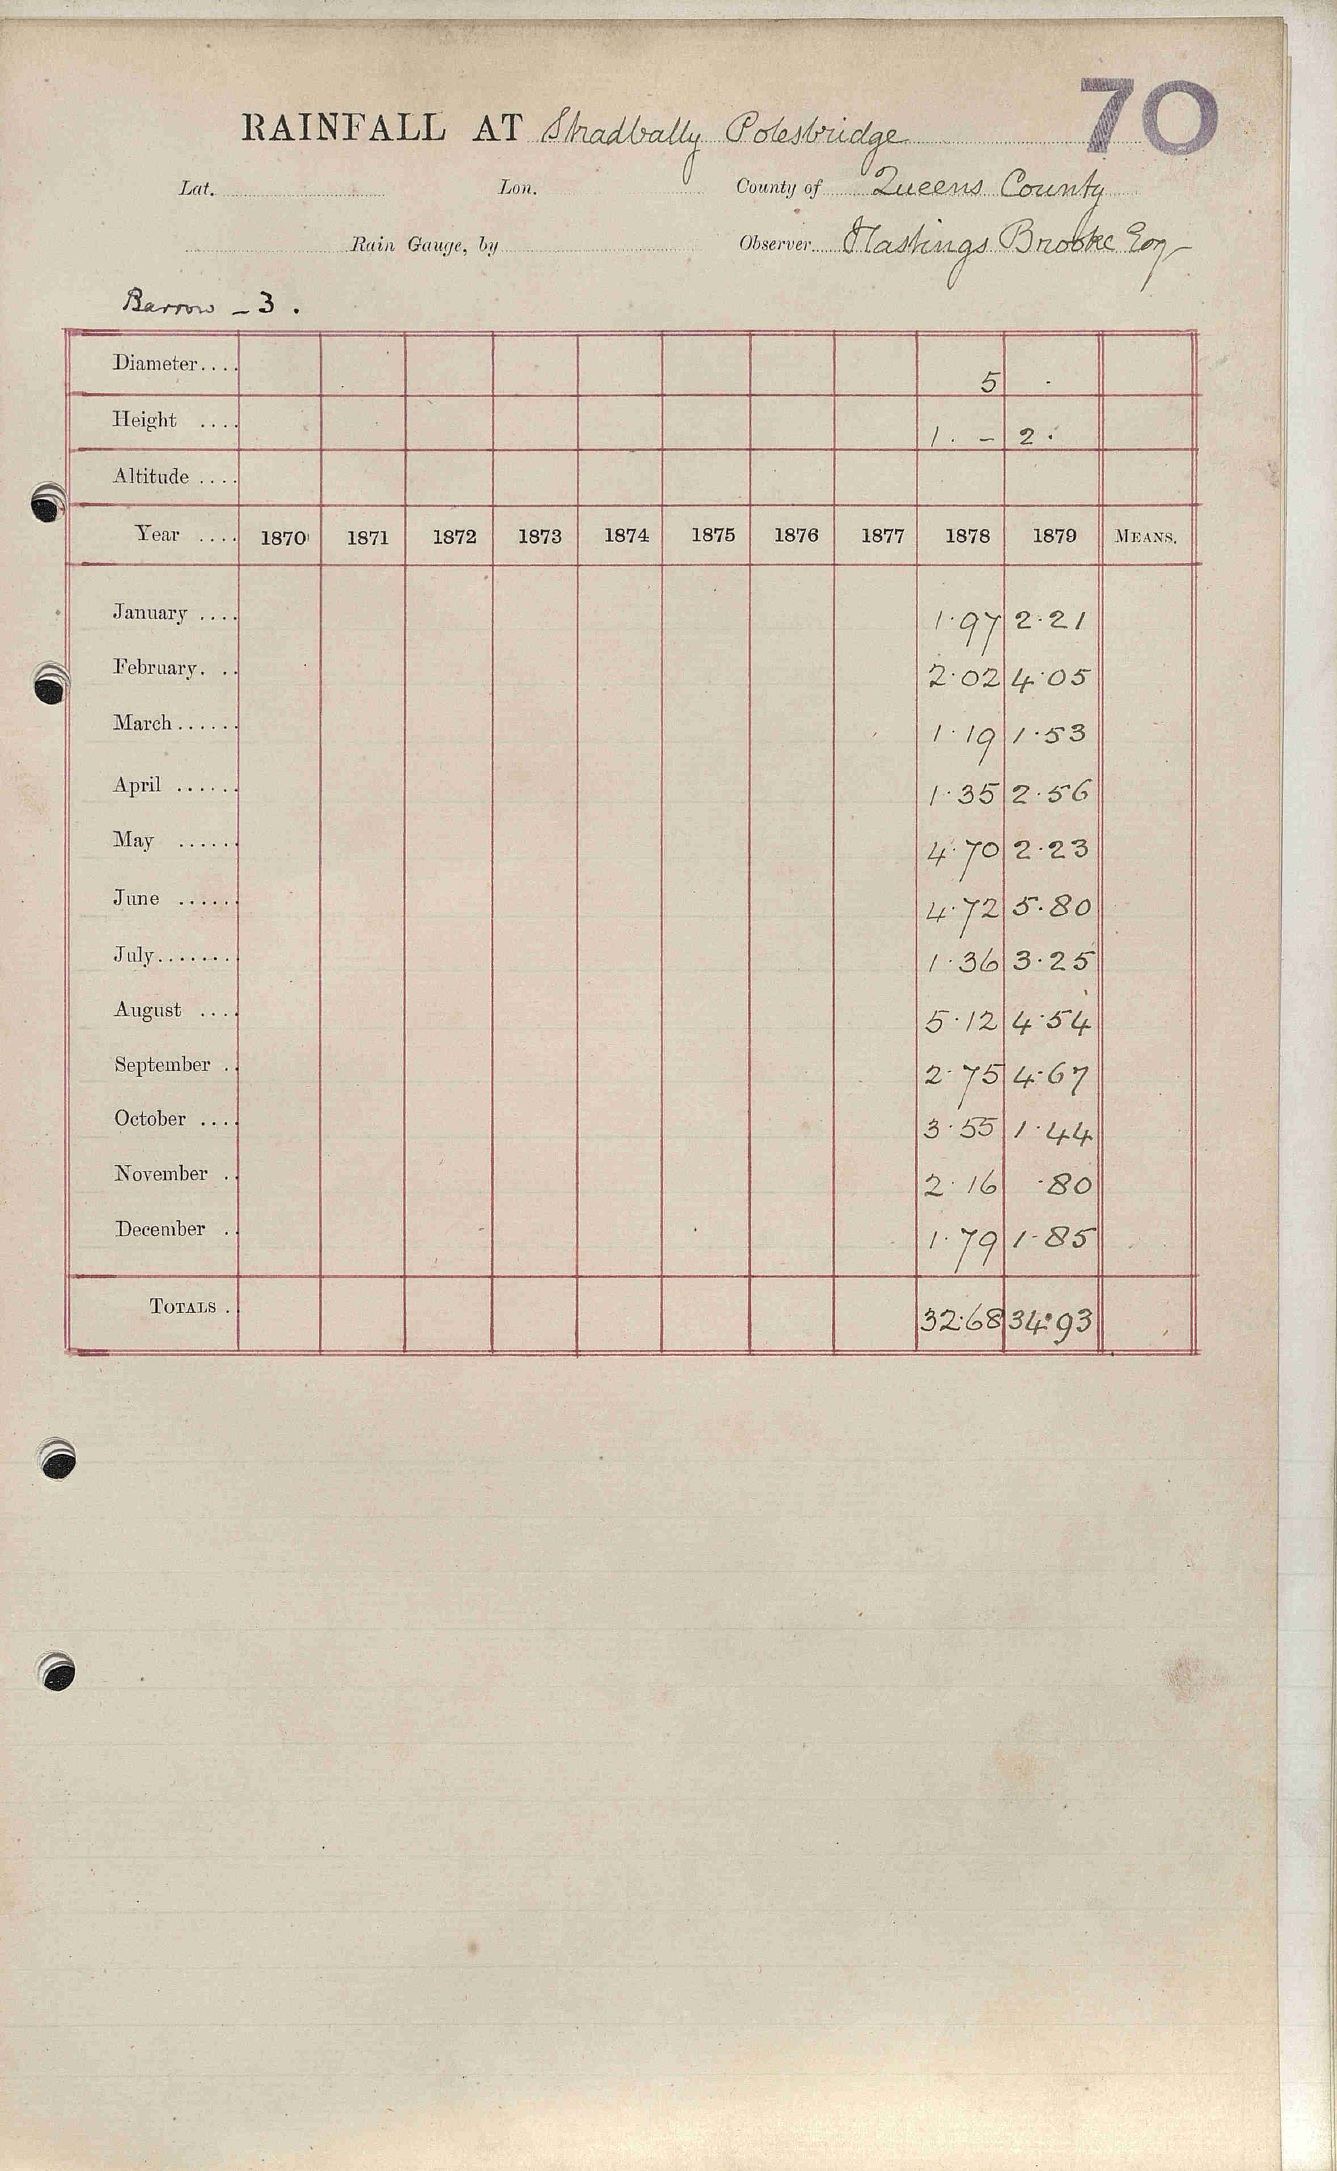 70
RAINFALL AT Stradbally Polesbridge
Lat. Lon. County of Queens County
Rain Gauge, by Observer Hastings Brooke Esq
Barrow - 3.
Diameter.... 5
Height .... 1. - 2.
Altitude ....
Year .... 1870 1871 1872 1873 1874 1875 1876 1877 1878 1879 MEANS.
January .... 1.97 2.21
February. .. 2.02 4.05
March...... 1.19 1.53
April ...... 1.35 2.56
May ...... 4.70 2.23
June ...... 4.72 5.80
July........ 1.36 3.25
August .... 5.12 4.54
September .. 2.75 4.67
October .... 3.55 1.44
November .. 2.16 .80
December .. 1.79 1.85
TOTALS . 32.68 34.93